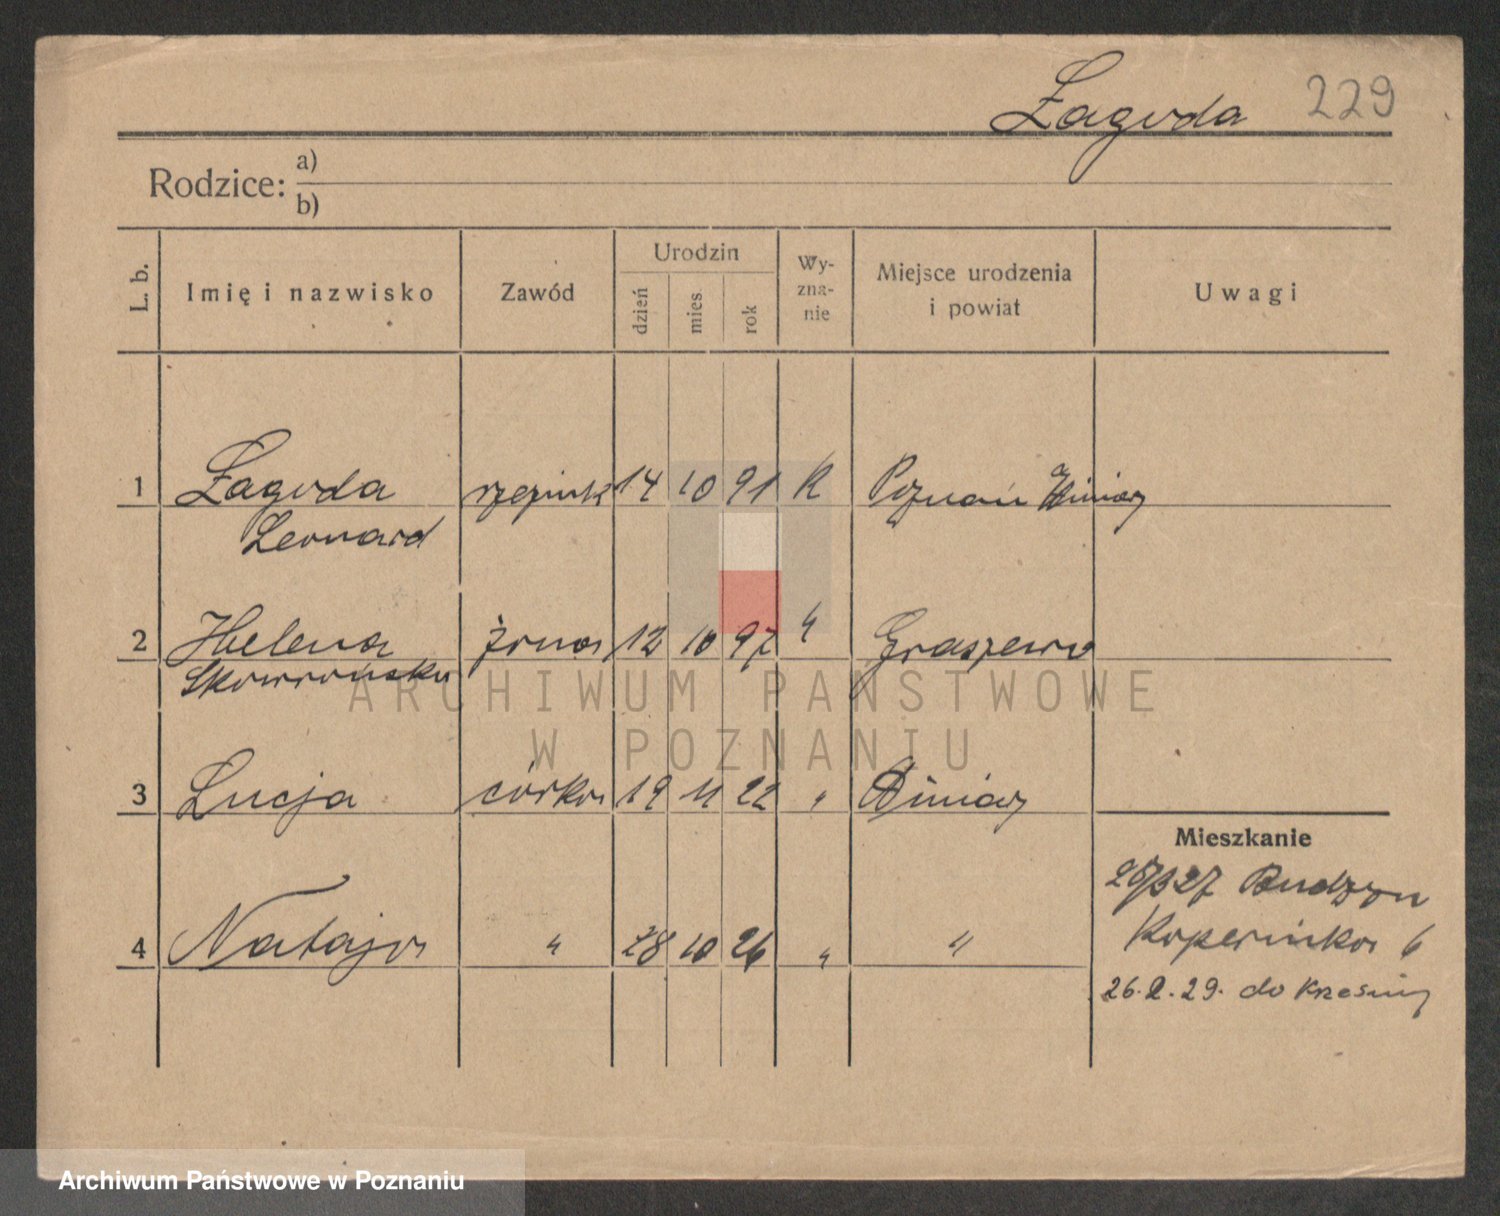 Łagoda 229
Rodzice: a)
b)
L. b. Imię i nazwisko Zawód Urodzin dzień mies rok Wy-zna-nie Miejsce urodzenia i powiat Uwagi
1 Łagoda 14 10 91 R Poznań Winiary
Leonard
2 Helena żona 12 10 97 "
Skowrońska
3 Łucja córka 19 11 22 " Winiary
4 " 28 10 26 " "
Mieszkanie
27 Budzyn
Kopernika 6
26.2.29. do Krzesiny
ARCHIWUM PAŃSTWOWE
W POZNANIU
Archiwum Państwowe w Poznaniu